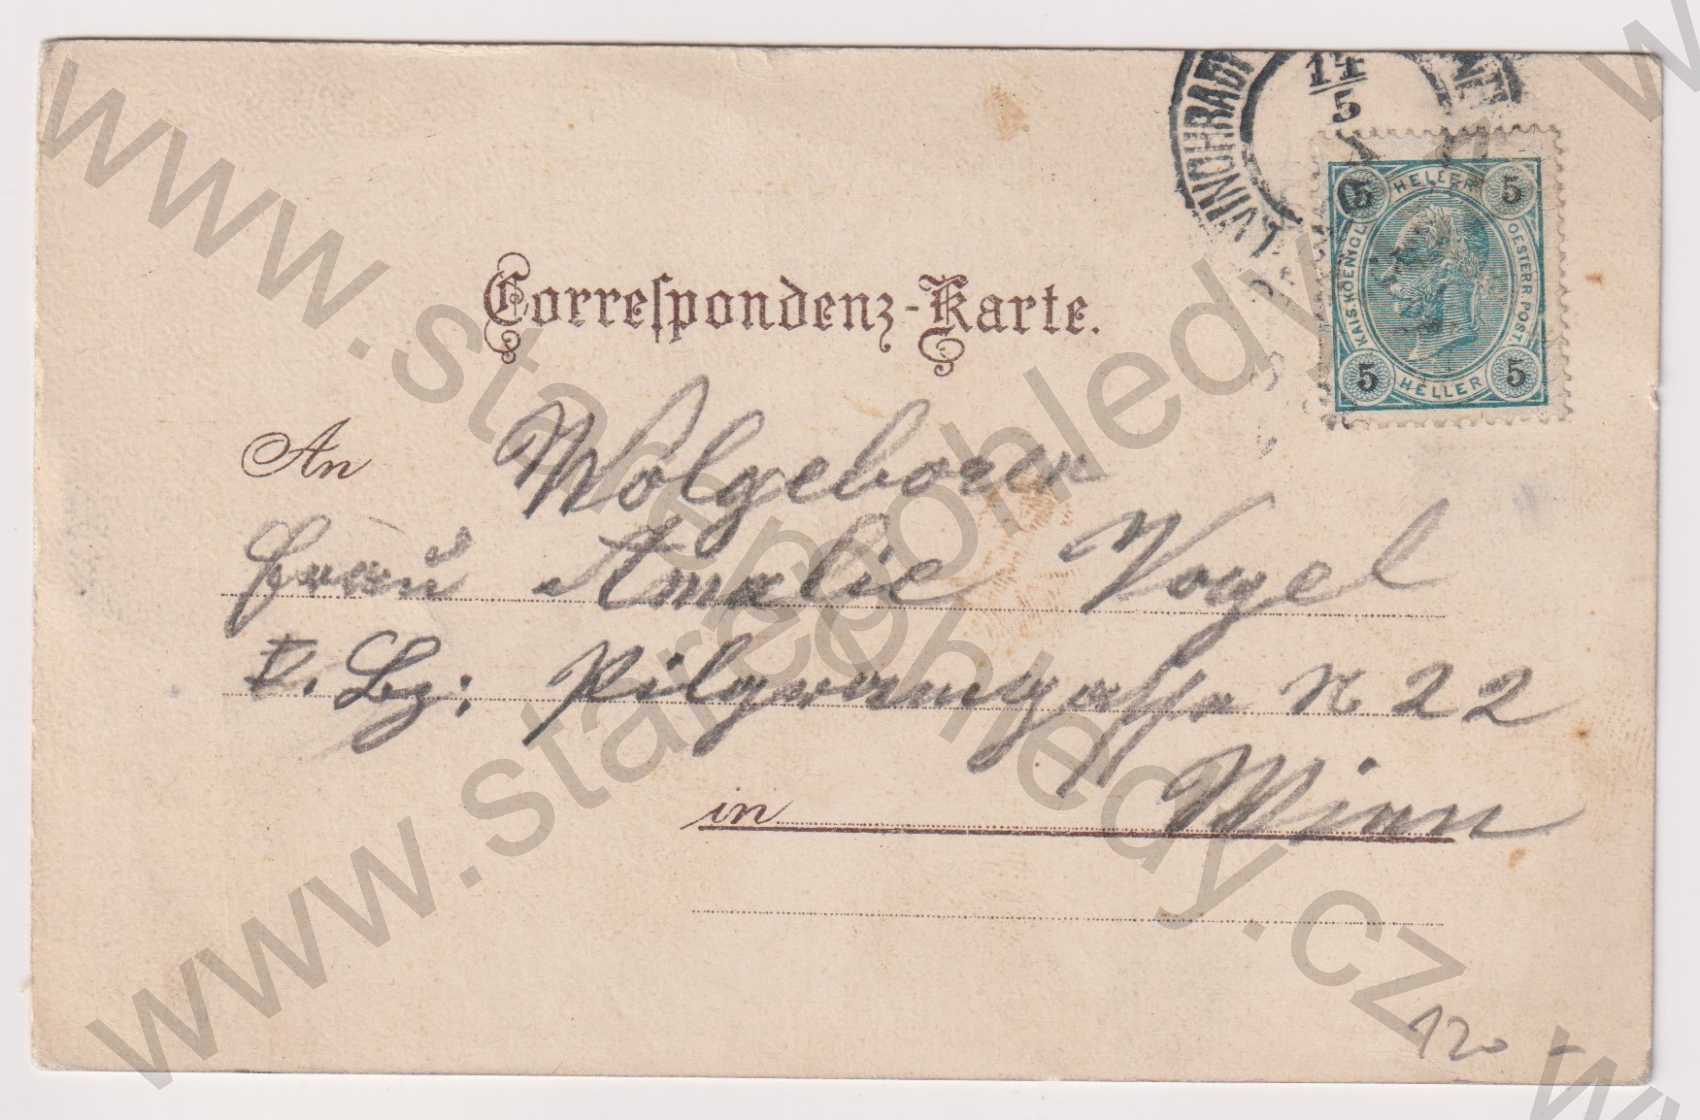 KRÁL. VINOHRADY
14/5
5 HELLER 5
KAIS. KÖNIGL. OESTERR. POST.
5 HELLER 5
Correspondenz-Karte.
An Wolgeboren
Frau Amalie Vogel
V. Bz: Pilgramgasse N 22
in Wien
120 –
www.starepohledy.cz
www.starepohledy.cz